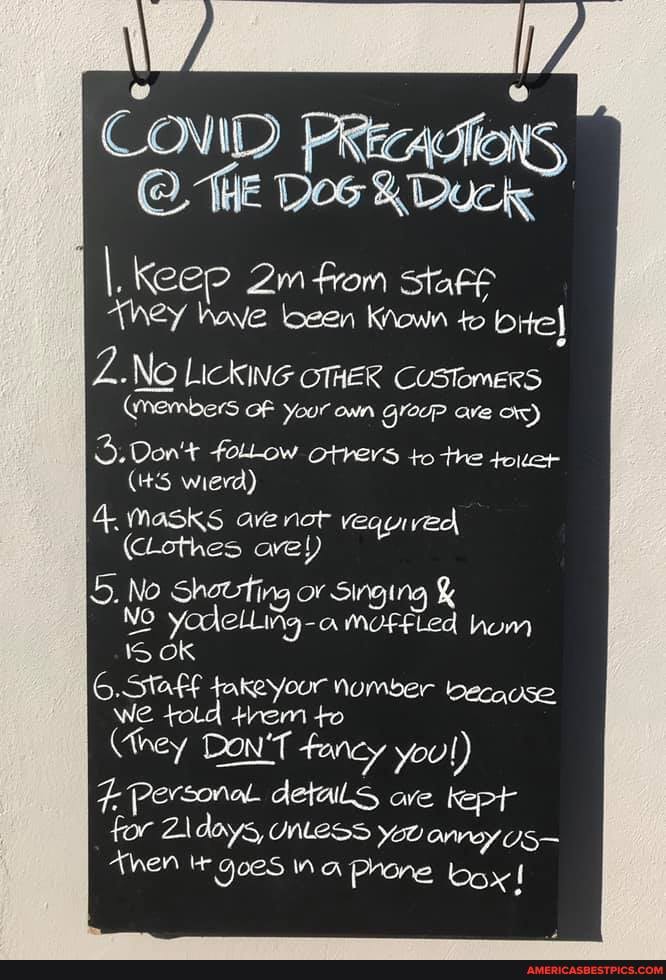 COVID PRECAUTIONS
@ THE DOG & DUCK
1. Keep 2m from staff,
they have been known to bite!
2. NO LICKING OTHER CUSTOMERS
(members of your own group are ok)
3. Don't follow others to the toilet
(it's wierd)
4. masks are not required
(clothes are!)
5. No shouting or singing &
NO yodelling - a muffled hum
is ok
6. Staff take your number because
we told them to
(They DON'T fancy you!)
7. Personal details are kept
for 21 days, unless you annoy us -
then it goes in a phone box!
AMERICASBESTPICS.COM